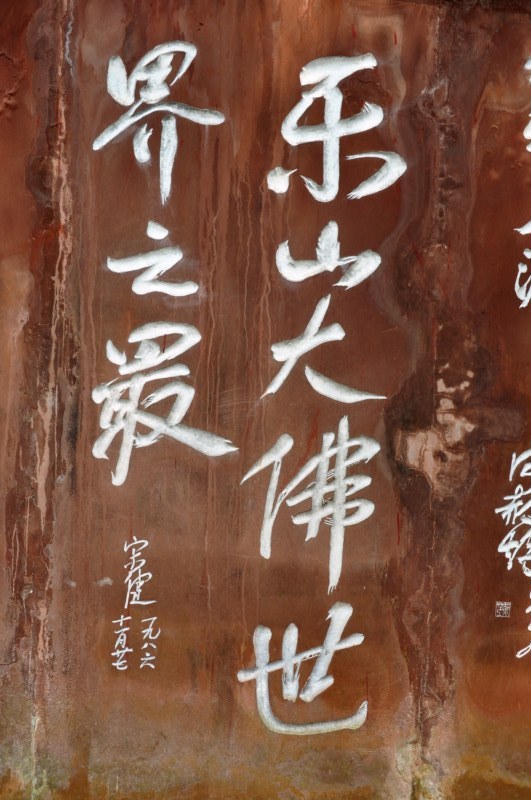 乐山大佛世
界之最
宋健
一九八六
十一月廿七